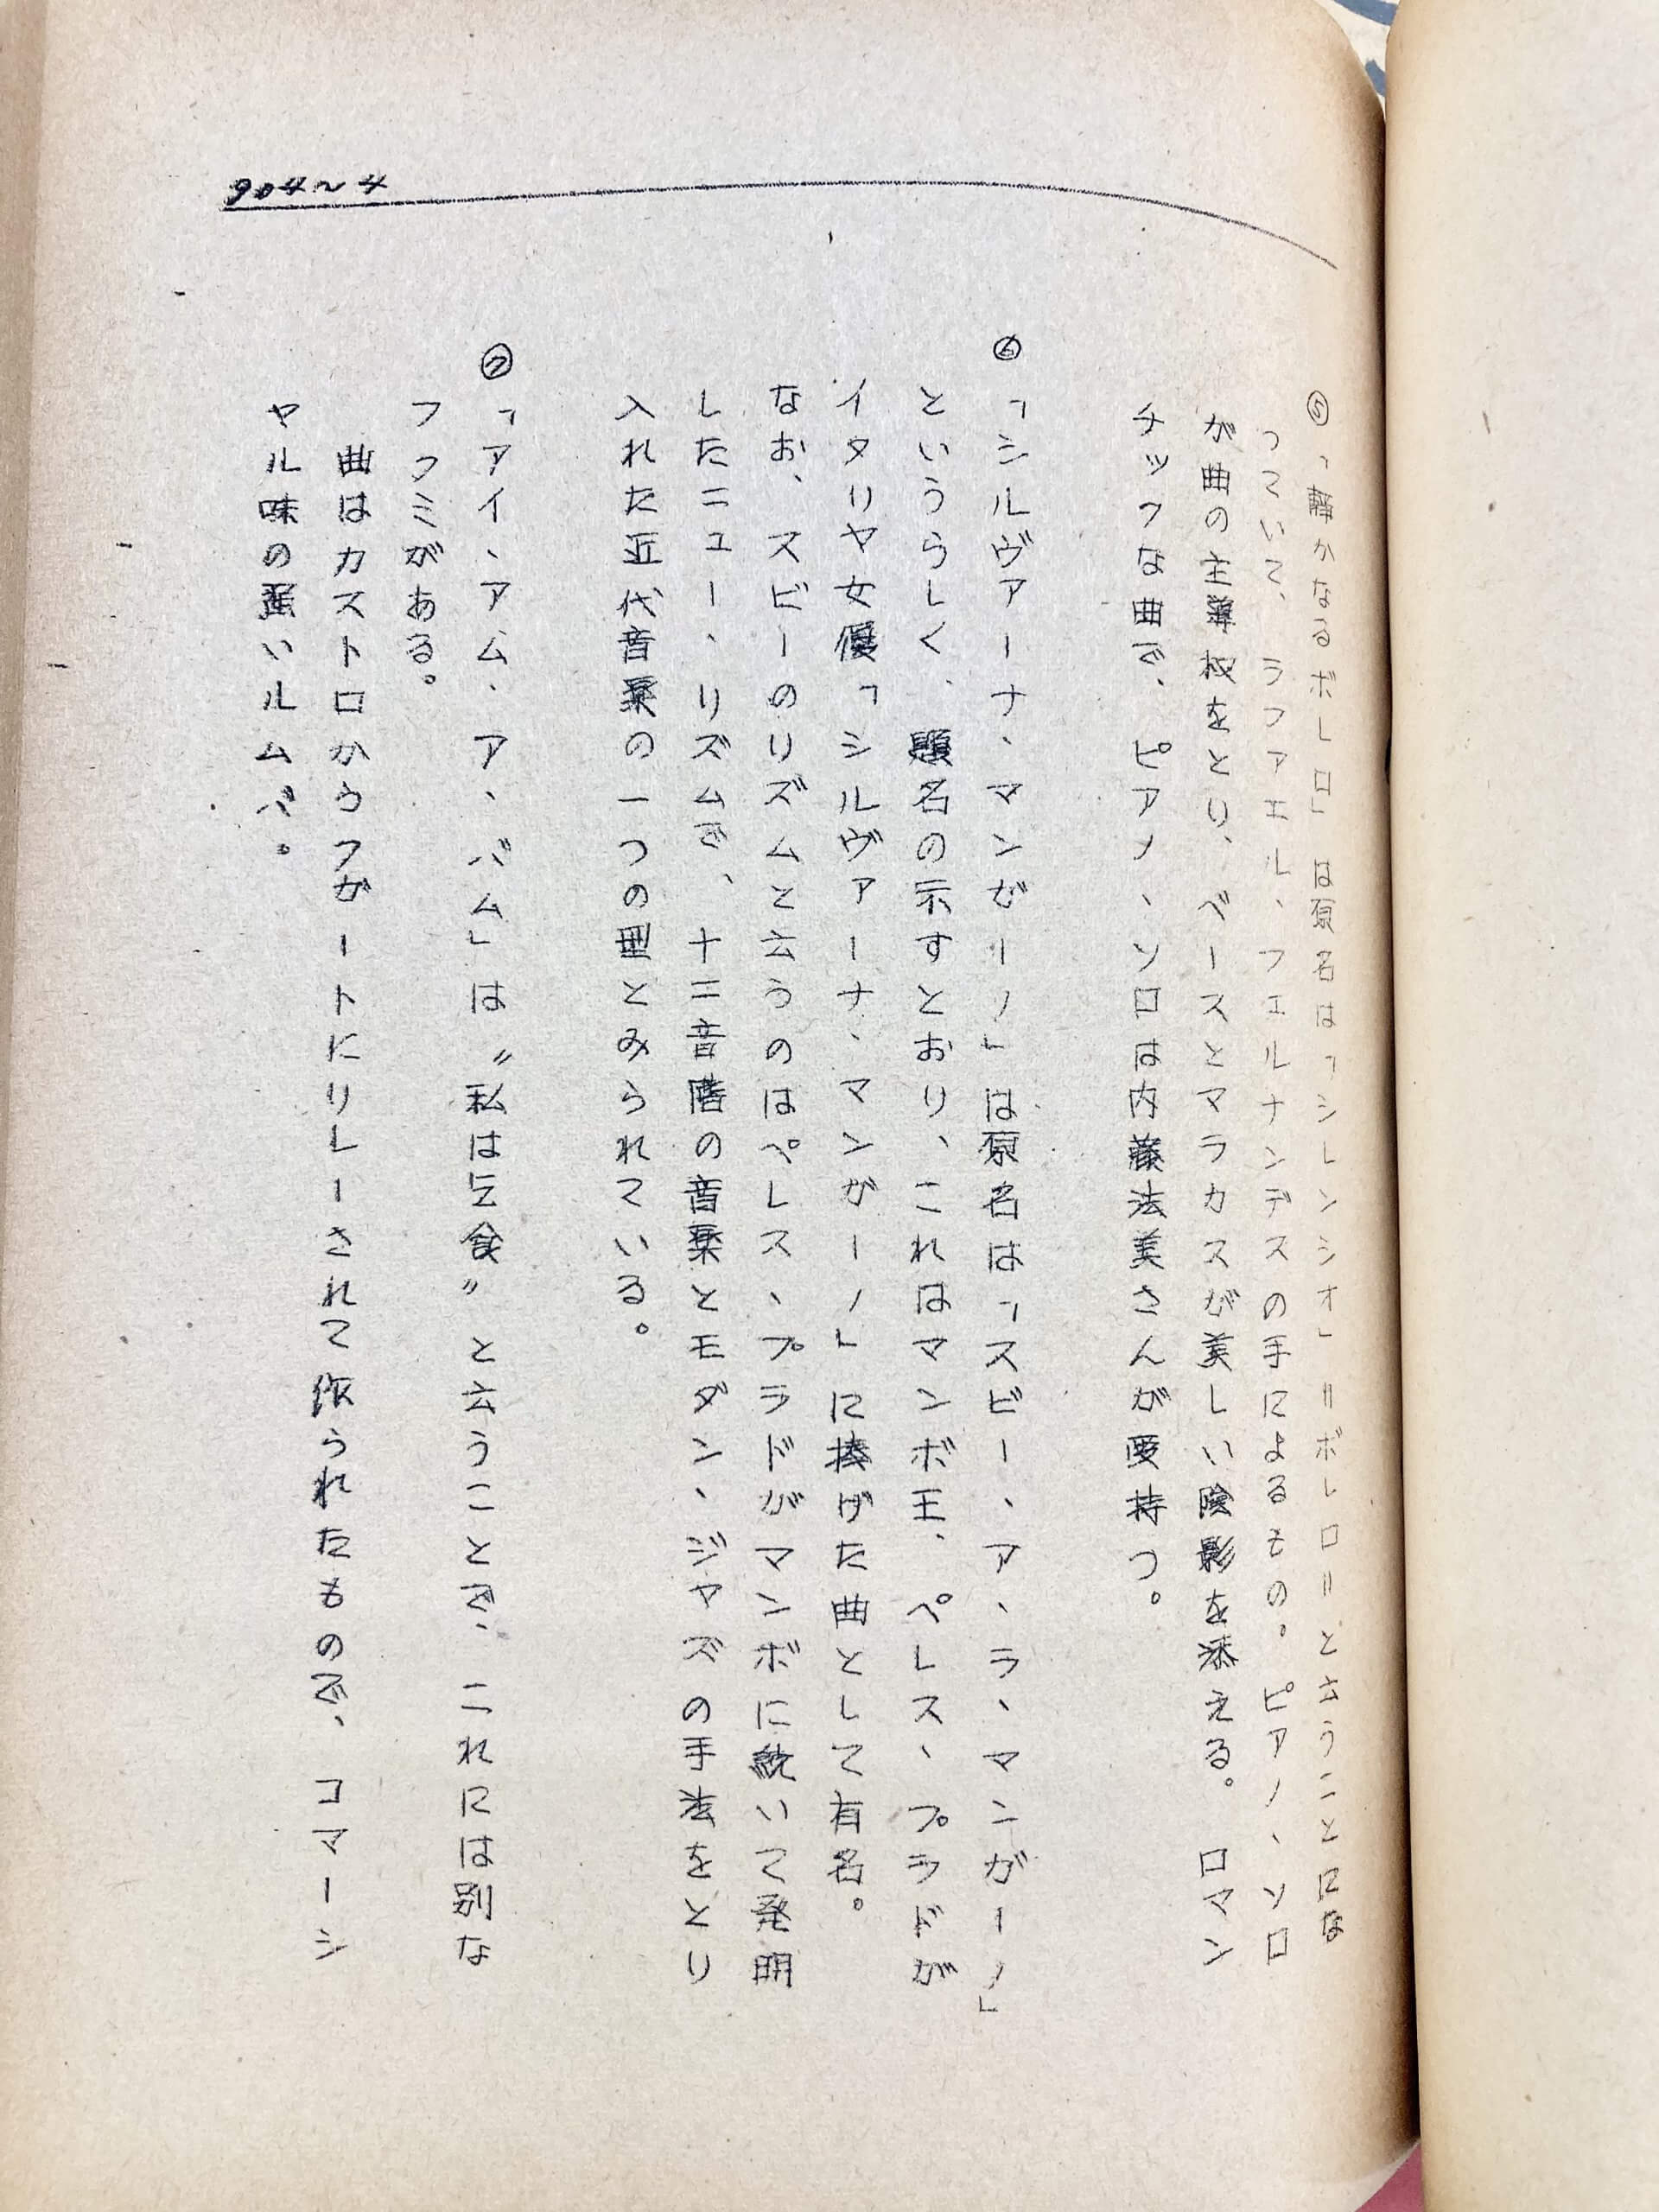 904～4
⑤「静かなるボレロ」は原名は「シレンシオ」＝ボレロ＝と云うことにな
っていて、ラファエル、フェルナンデスの手によるもの。ピアノ、ソロ
が曲の主導权をとり、ベースとマラカスが美しい陰影を添える。ロマン
チックな曲で、ピアノ、ソロは内藤法美さんが受持つ。
⑥「シルヴァーナ、マンガーノ」は原名は「スビー、ア、ラ、マンガーノ」
というらしく、題名の示すとおり、これはマンボ王、ペレス、プラドが
イタリヤ女優「シルヴァーナ、マンガーノ」に捧げた曲として有名。
なお、スビーのリズムと云うのはペレス、プラドがマンボに続いて発明
したニュー、リズムで、十二音階の音楽とモダン、ジャズの手法をとり
入れた近代音楽の一つの型とみられている。
⑦「アイ、アム、ア、バム」は〝私は乞食〟と云うことで、これには別な
フクミがある。
曲はカストロからクガートにリレーされて作られたもので、コマーシ
ヤル味の強いルムバ。